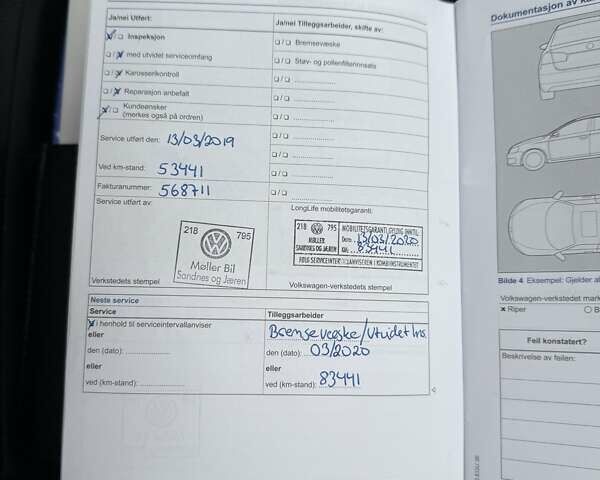 Ja/nei Utført:
Ja/nei Tilleggsarbeider, skifte av:
Inspeksjon
Bremsevæske
med utvidet serviceomfang
Støv- og pollenfilterinnsats
Karosserikontroll
Reparasjon anbefalt
Kundeønsker
(merkes også på ordren)
Service utført den: 13/03/2019
Ved km-stand: 53441
Fakturanummer: 568711
Service utført av:
LongLife mobilitetsgaranti:
218 795
Møller Bil
Sandnes og Jæren
Verkstedets stempel
218 795
MØLLER
SANDNES OG JÆREN
MOBILITETSGARANTI GYLDIG INNTIL
Dato: 13/03/2020
KM: 83441
Volkswagen-verkstedets stempel
Neste service
Service
Tilleggsarbeider
i henhold til serviceintervallanviser
Bremsevæske/Utvidet Ins.
eller
den (dato):
den (dato): 03/2020
eller
eller
ved (km-stand):
ved (km-stand): 83441
Dokumentasjon av
Bilde 4 Eksempel: Gjelder
Volkswagen-verkstedet
Riper
Feil konstatert?
Beskrivelse av feilen: